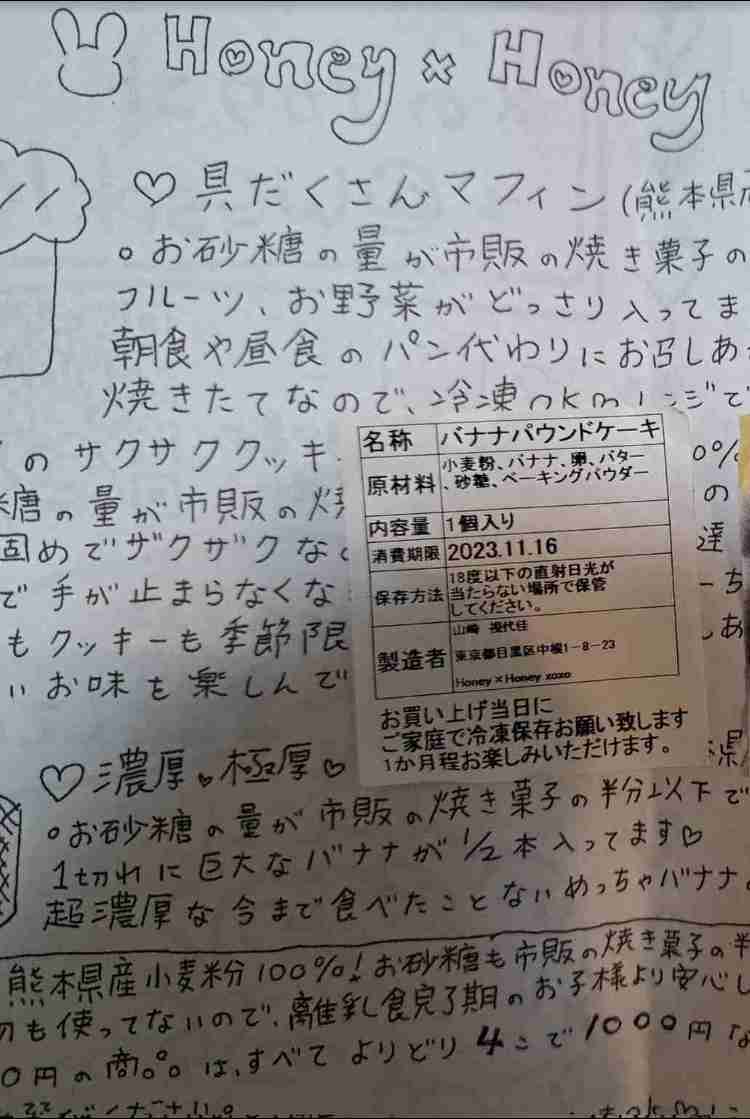 Honey × Honey
♡ 具だくさんマフィン(熊本県産
○お砂糖の量が市販の焼き菓子の
フルーツ、お野菜がどっさり入ってま
朝食や昼食のパン代わりにお召しあ
焼きたてなので、冷凍
のサクサククッキ
糖の量が市販の焼
固めでザクザクな
で手が止まらなくな
もクッキーも季節限
いお味を楽しんで
0%
の
達
名称 バナナパウンドケーキ
原材料 小麦粉、バナナ、卵、バター
、砂糖、ベーキングパウダー
内容量 1個入り
消費期限 2023.11.16
保存方法 18度以下の直射日光が
当たらない場所で保管
してください。
製造者 山崎 代佳
東京都目黒区中根1-8-23
Honey×Honey xoxo
お買い上げ当日に
ご家庭で冷凍保存お願い致します
1か月程お楽しみいただけます。
♡濃厚♥極厚♡
○お砂糖の量が市販の焼き菓子の半分以下で
1切れに巨大なバナナが1/2本入ってます♡
超濃厚な今まで食べたことないめっちゃバナナ
熊本県産小麦粉100%!お砂糖も市販の焼き菓子の半
も使ってないので、離乳食完了期のお子様より安心し
0円の商品は、すべてよりどり4こで1000円な